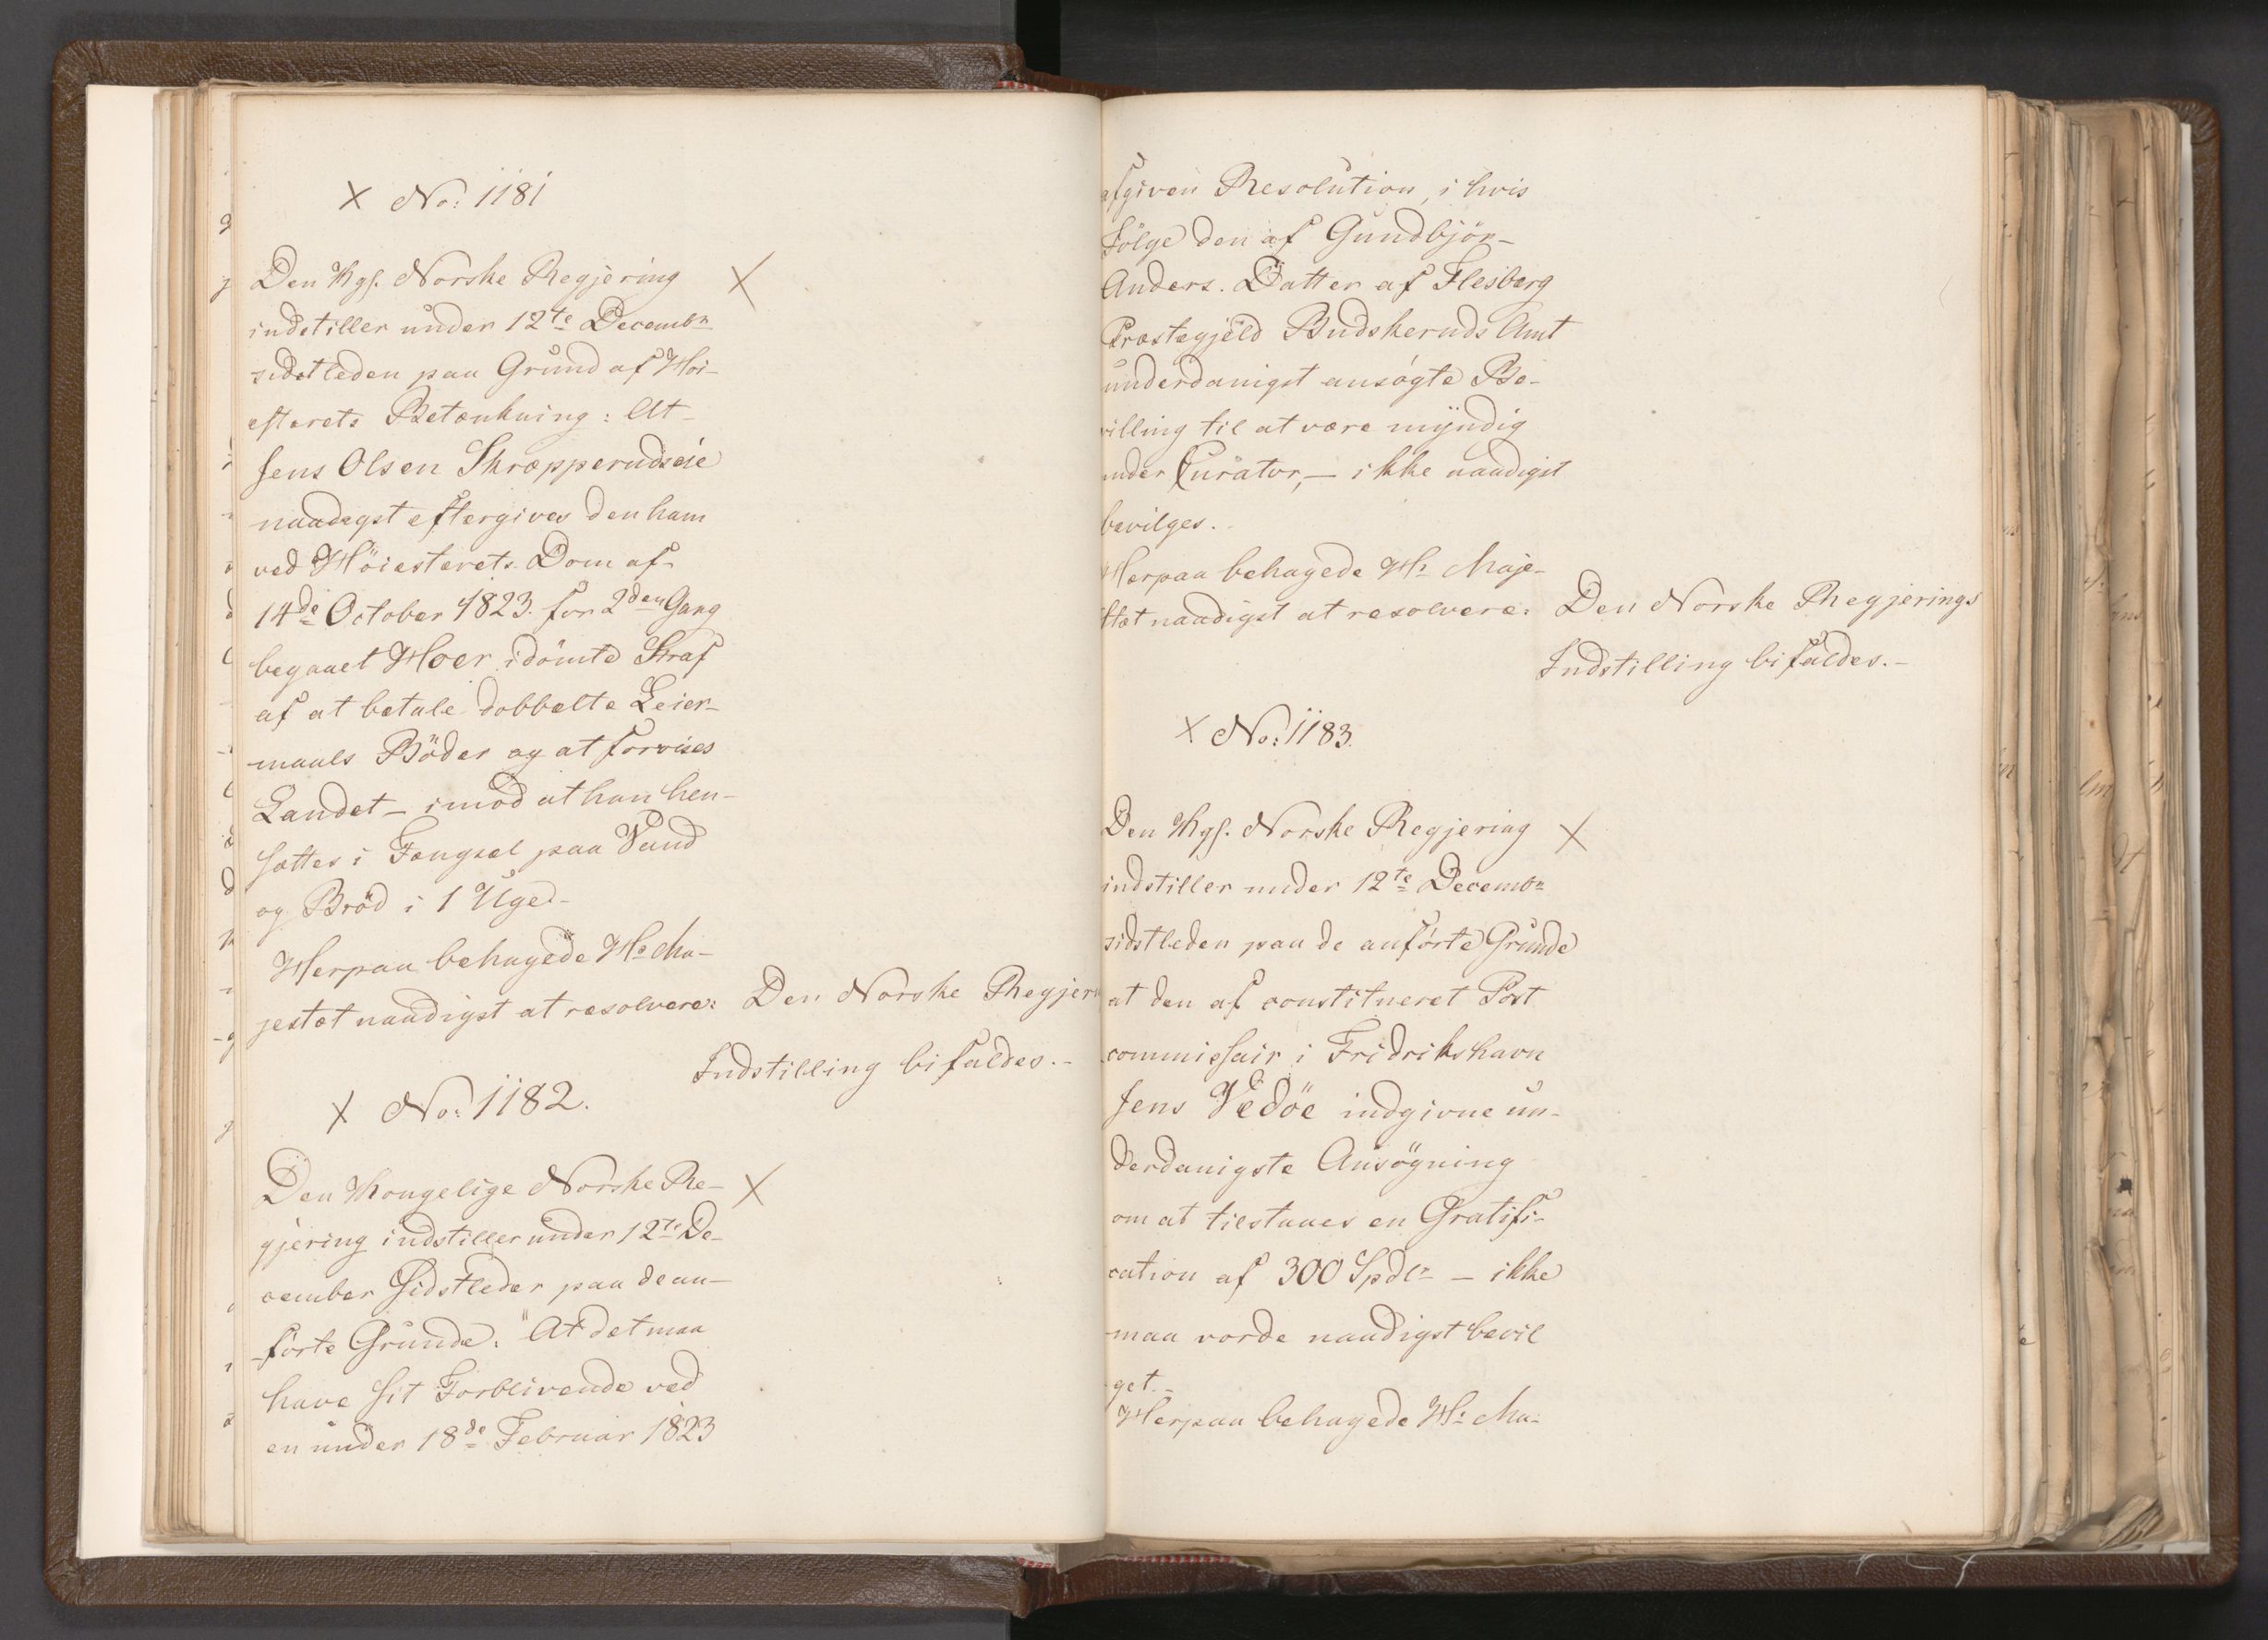 X No: 1181
Den Kgl. Norske Regjering X
indstiller under 12te Decembr
sidstleden paa Grund af Höi-
esterets Betænkning: At
Jens Olsen Skræpperudseie
naadigst eftergives den ham
ved Höiesterets Dom af
14de October 1823. for 2den Gang
begaaet Hoer idömte Straf
af at betale dobbelte Leier-
maals Böder og at forvises
Landet - imod at han hen-
sættes i Fængsel paa Vand
og Bröd i 1 Uge.-
Herpaa behagede Hs Ma-
jestæt naadigst at resolvere: Den Norske Regjer
Indstilling bifaldes.-
X No: 1182.
Den Kongelige Norske Re- X
gjering indstiller under 12te De-
cember Sidstleder paa de an-
förte Grunde: "At det maa
have sit Forblivende ved
en under 18de Februar 1823
afgiven Resolution, i hvis
Fölge den af Gundbjör
Anders. Datter af Flesberg
Præstegjeld Budskeruds Amt
underdanigst ansögte Be-
villing til at være myndig
under Curator, - ikke naadigst
bevilges.
Herpaa behagede Hs Maje-
stæt naadigst at resolvere: Den Norske Regjerings
Indstilling bifaldes.-
X No: 1183.
Den Kgl. Norske Regjering X
indstiller under 12te Decembr
sidstleden paa de anförte Grunde
at den af constitueret Post
commissair i Fridrikshavn
Jens Vedöe indgivne un-
derdanigste Ansögning
om at tilstaaes en Gratifi-
cation af 300 Spdlr - ikke
maa vorde naadigst bevil
get.-
Herpaa behagede Hs Ma-